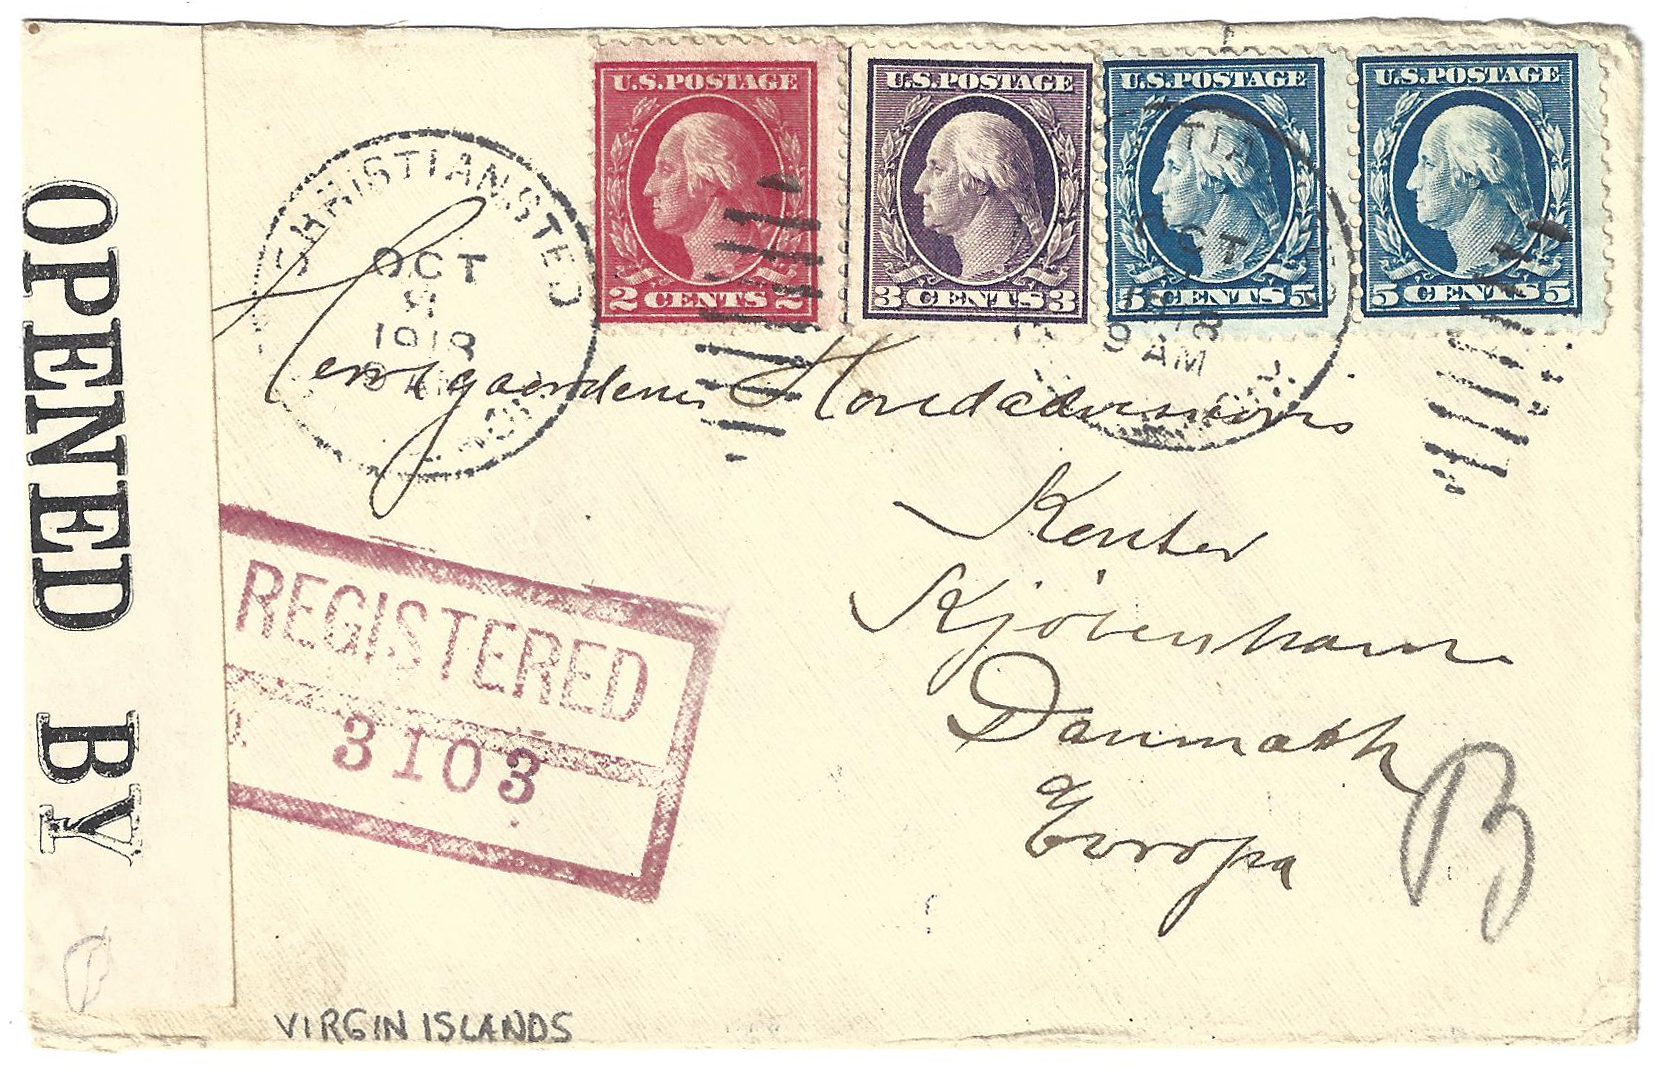 OPENED BY
U.S. POSTAGE
2 CENTS 2
U.S. POSTAGE
3 CENTS 3
U.S. POSTAGE
5 CENTS 5
U.S. POSTAGE
5 CENTS 5
CHRISTIANSTED
OCT
1918
AM
TIA
OCT
1918
9 AM
Kontor
Kjöbenhavn
Danmark
Europa
REGISTERED
3103
B
VIRGIN ISLANDS